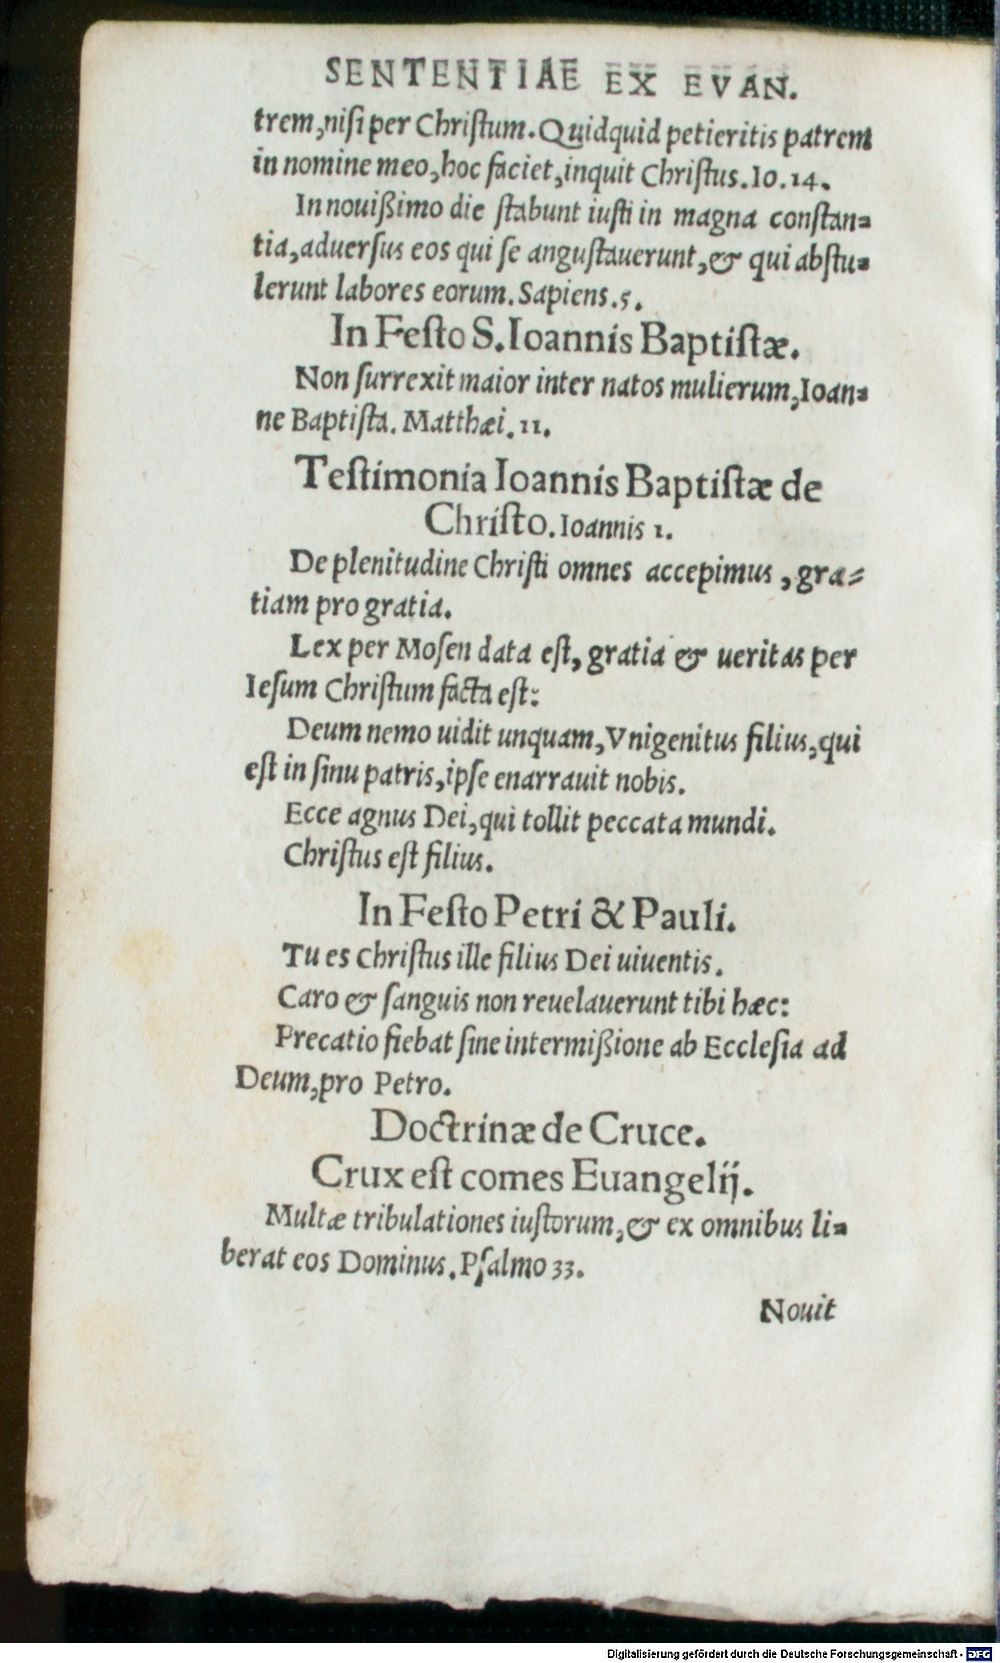 SENTENTIAE EX EVAN.
trem,niſi per Chriſtum. Quidquid petieritis patrem
in nomine meo,hoc faciet,inquit Chriſtus. Io. 14.
In nouißimo die ſtabunt iuſti in magna conſtan⸗
tia,aduerſus eos qui ſe anguſtauerunt,& qui abſtu⸗
lerunt labores eorum. Sapiens. 5.
In Feſto S. Ioannis Baptiſtæ.
Non ſurrexit maior inter natos mulierum,Ioan⸗
ne Baptiſta. Matthæi. 11.
Teſtimonia Ioannis Baptiſtæ de
Chriſto. Ioannis 1.
De plenitudine Chriſti omnes accepimus , gra⸗
tiam pro gratia.
Lex per Moſen data eſt, gratia & ueritas per
Ieſum Chriſtum facta eſt:
Deum nemo uidit unquam,Vnigenitus filius,qui
eſt in ſinu patris,ipſe enarrauit nobis.
Ecce agnus Dei,qui tollit peccata mundi.
Chriſtus eſt filius.
In Feſto Petri & Pauli.
Tu es Chriſtus ille filius Dei uiuentis.
Caro & ſanguis non reuelauerunt tibi hæc:
Precatio fiebat ſine intermißione ab Eccleſia ad
Deum,pro Petro.
Doctrinæ de Cruce.
Crux eſt comes Euangelij.
Multæ tribulationes iuſtorum,& ex omnibus li⸗
berat eos Dominus. Pſalmo 33.
Nouit
Digitalisierung gefördert durch die Deutsche Forschungsgemeinschaft - DFG